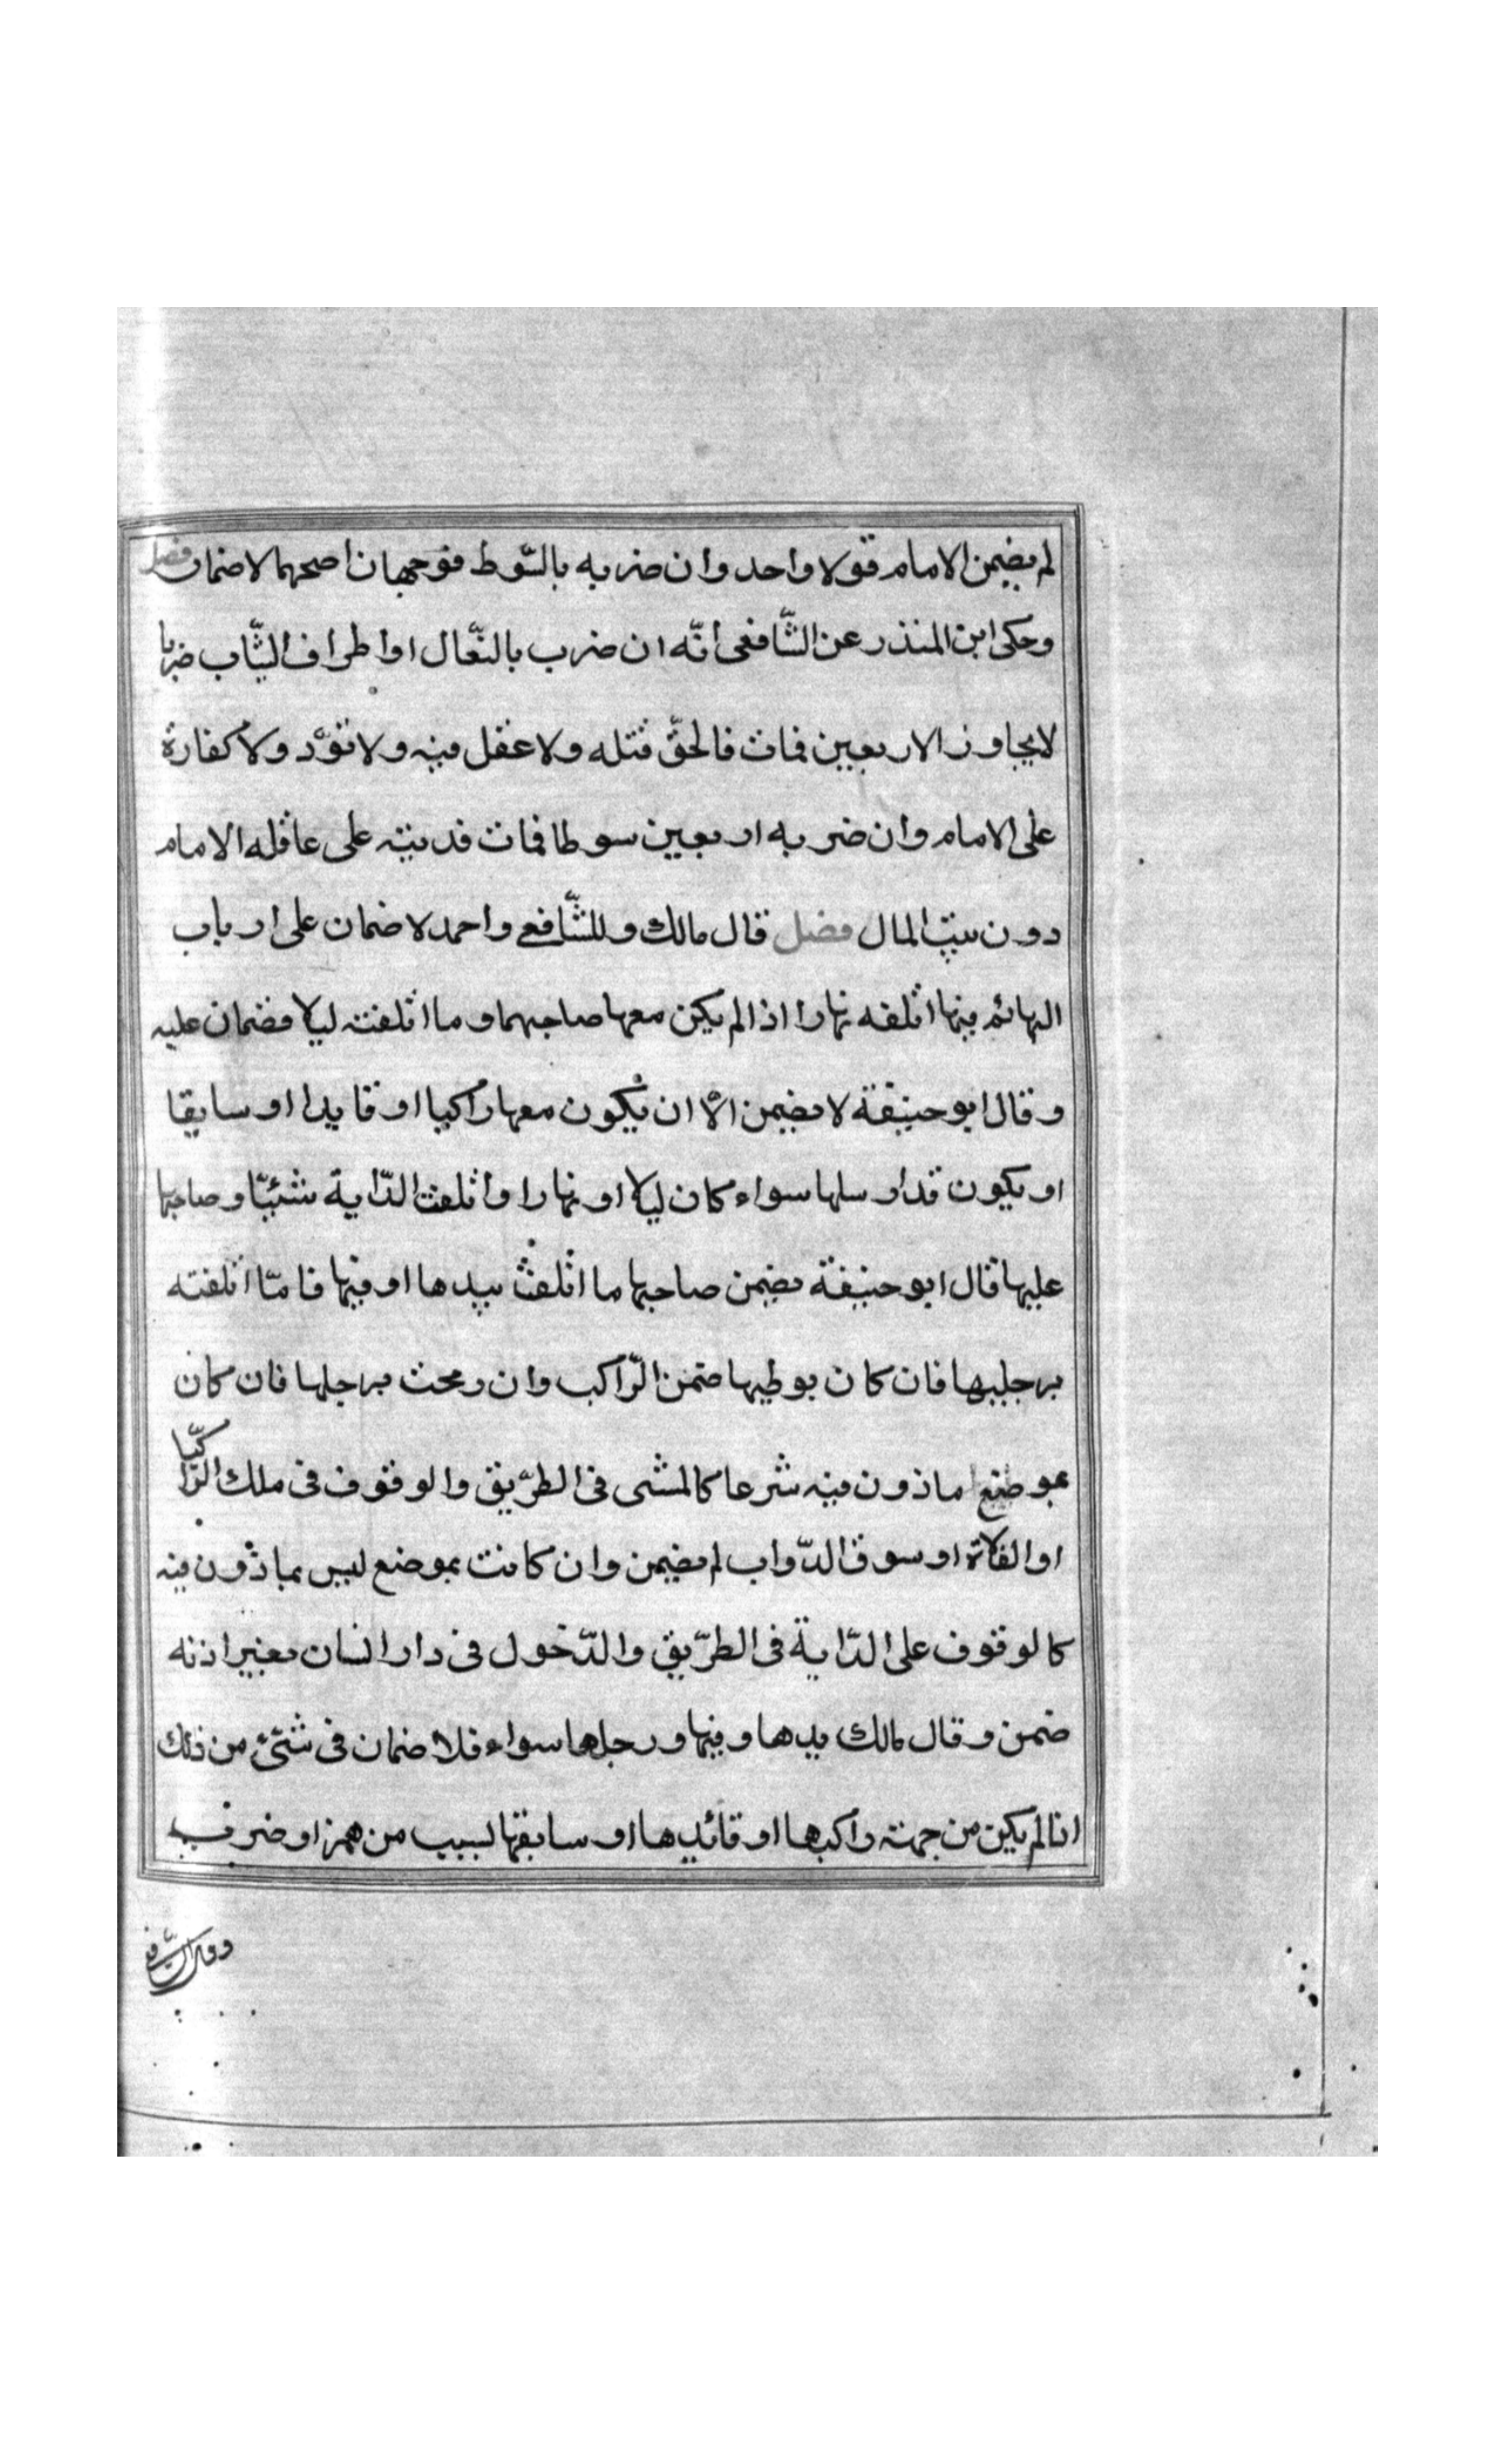 لم يضمن الامام قولا واحد وان ضربه بالسّوط فوجهان اصحهما لا ضمان فصل
وحكى ابن المنذر عن الشّافعى انّه ان ضرب بالنّعال او اطراف الثّياب ضربا
لا يجاوز الاربعين فمات فالحقّ قتله ولا عقل فيه ولا قوّد ولا كفارة
على الامام وان ضربه اربعين سوطا فمات فديته على عاقله الامام
دون بيت المال فصل قال مالك وللشّافعى واحمد لا ضمان على ارباب
البهائم فيما اتلفه نهارا اذا لم يكن معها صاحبهما وما اتلفته ليلا فضمان عليه
وقال ابو حنيفة لا يضمن الاّ ان يكون معها راكبا او قايدا او سايقا
او يكون قد ارسلها سواء كان ليلا او نهارا واتلفت الدّابة شئيّا وصاحبها
عليها قال ابو حنيفة يضمن صاحبها ما اتلفت بيدها او فيها فامّا اتلفته
برجليها فان كان بوطيها ضمن الرّاكب وان رمحت برجلها فان كان
بموضع ماذون فيه شرعا كالمشى فى الطرّيق والوقوف فى ملك الرّاكبّ
او الفلاة او سوق الدّواب لم يضمن وان كانت بموضع ليس بماذون فيه
كالوقوف على الدّابة فى الطرّيق والدّخول فى دار انسان بغير اذنه
ضمن وقال مالك يدها وفيها ورجلها سواء فلا ضمان فى شئ من ذلك
اذا لم يكن من جهته راكبها او قائدها او سابقها لسبب من همز او ضرب
وقال الشّافع